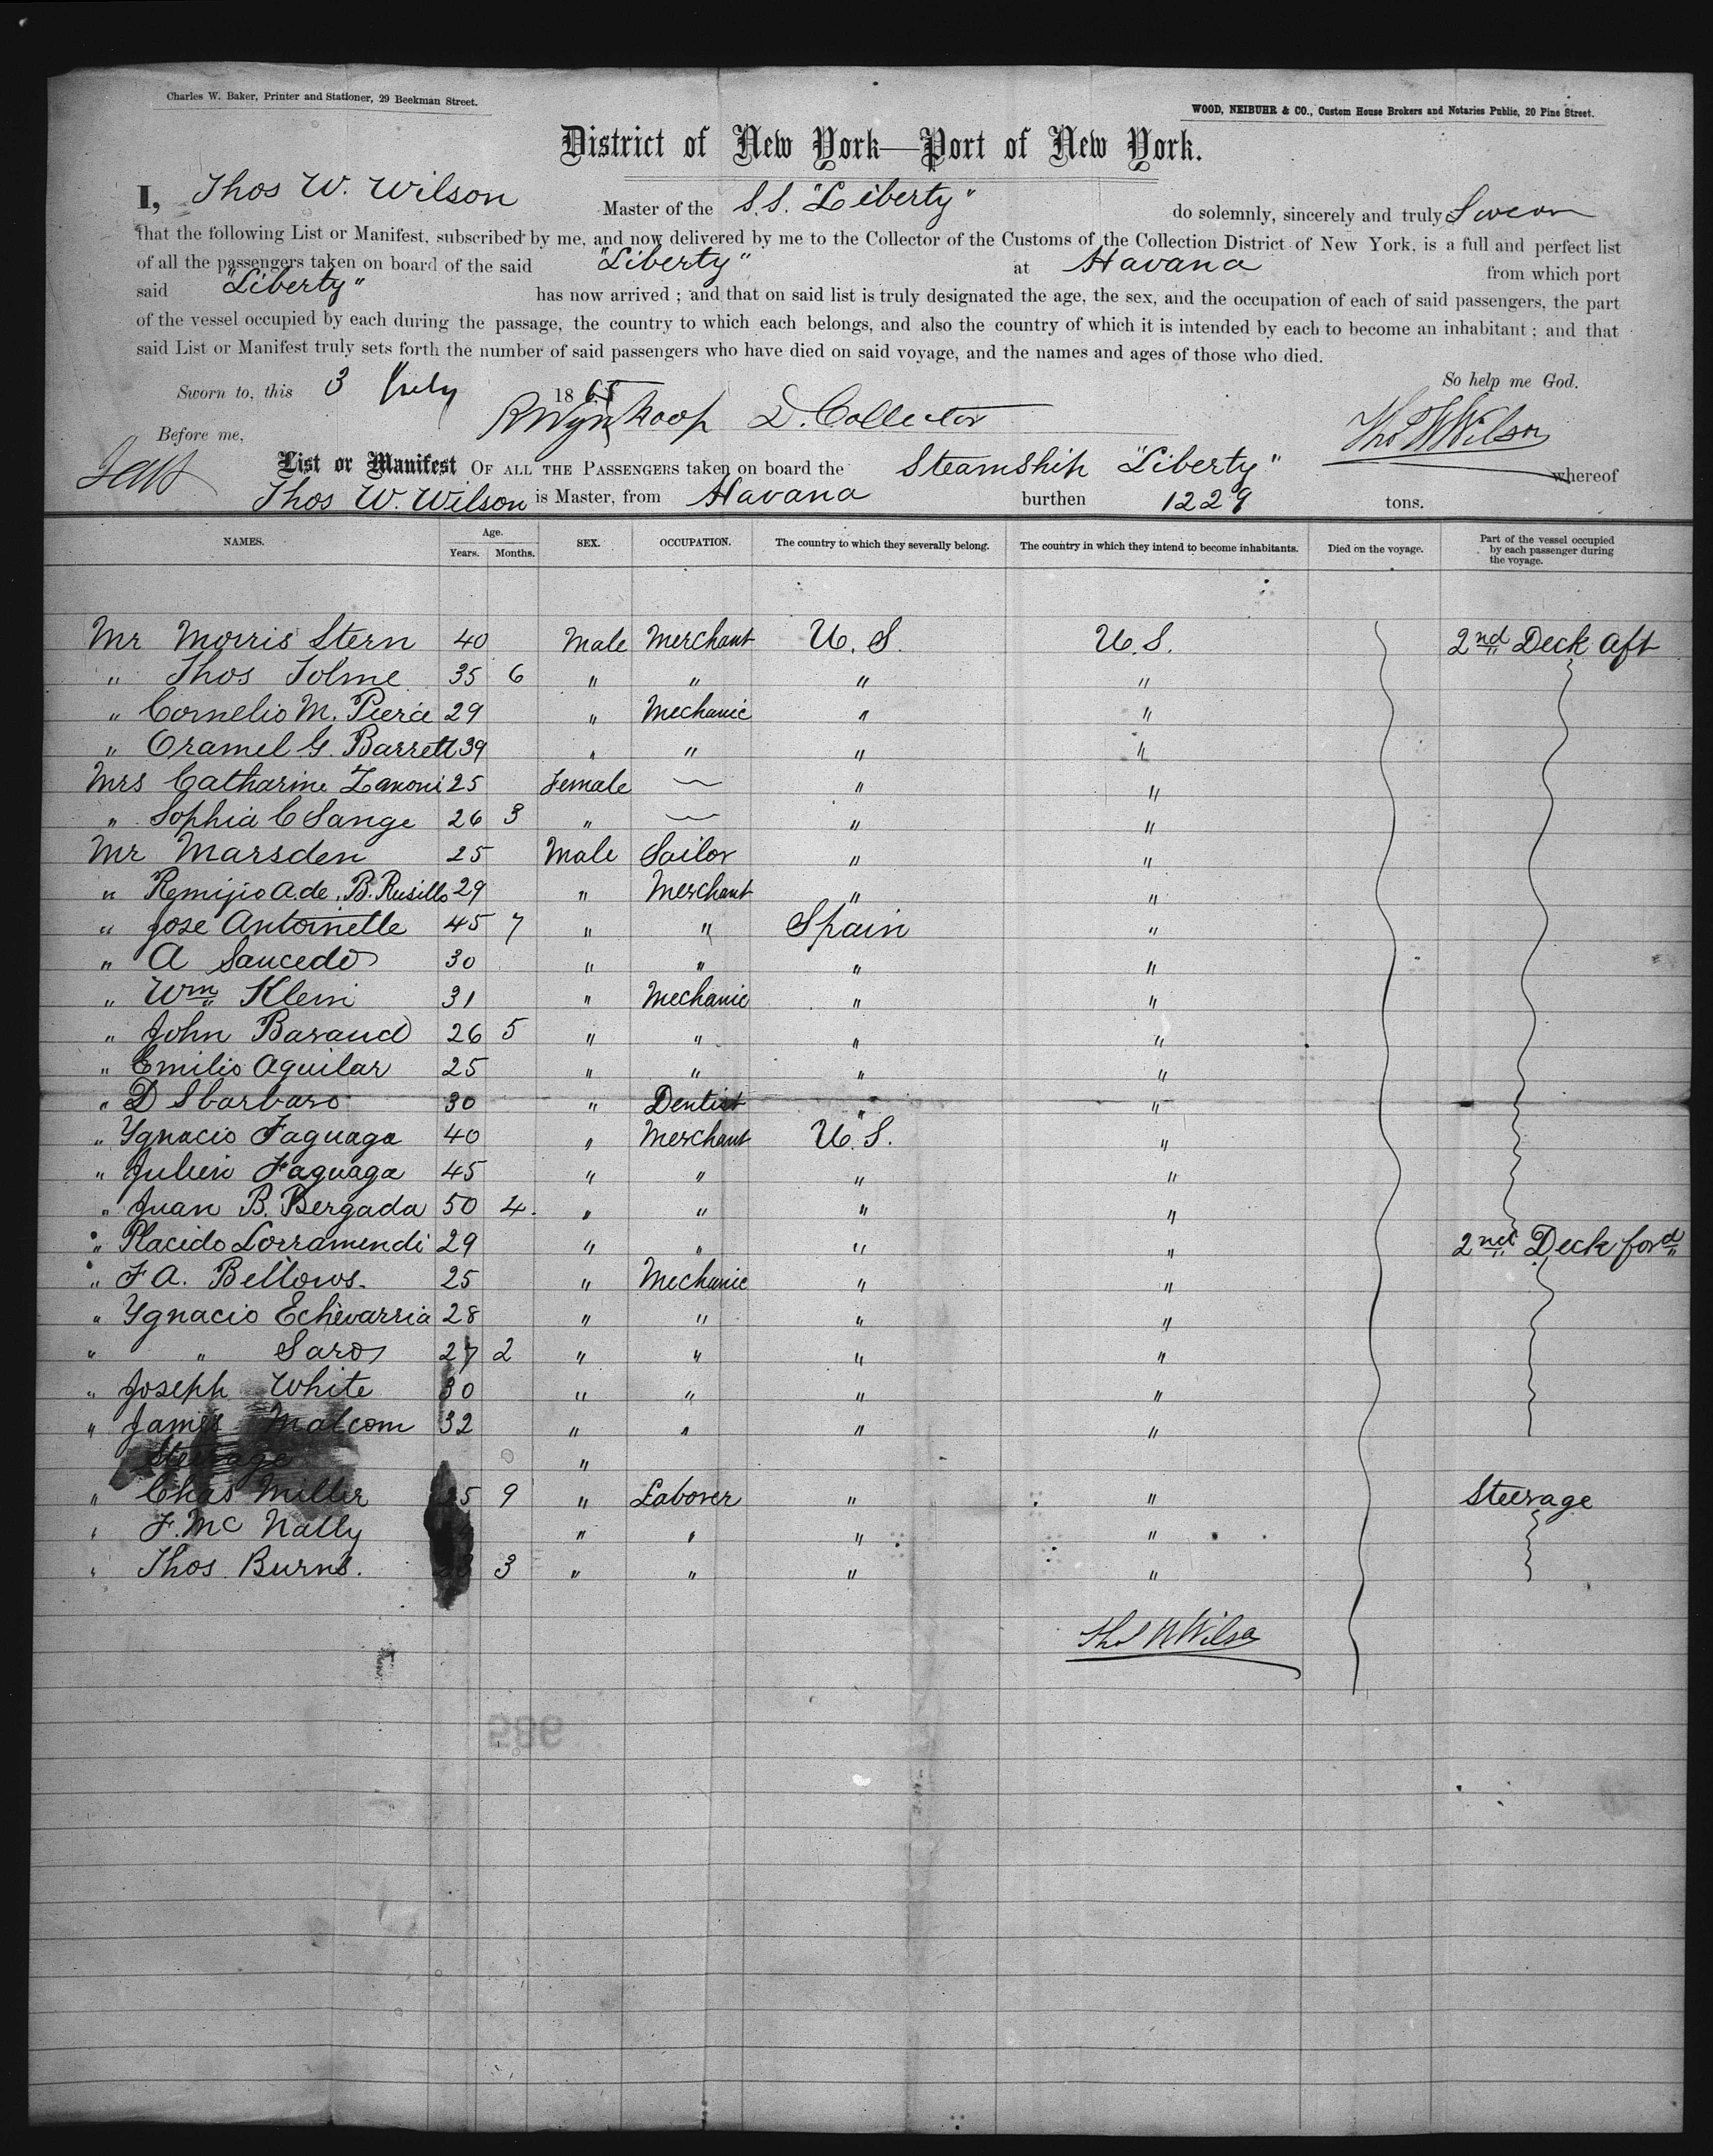 Charles W. Baker, Printer and Stationer, 29 Beekman Street.
WOOD, NEIBUHR & CO., Custom House Brokers and Notaries Public, 20 Pine Street.
District of New York—Port of New York.
I, Thos W. Wilson Master of the S.S. "Liberty" do solemnly, sincerely and truly Swear
that the following List or Manifest, subscribed by me, and now delivered by me to the Collector of the Customs of the Collection District of New York, is a full and perfect list
of all the passengers taken on board of the said "Liberty" at Havana from which port
said "Liberty" has now arrived ; and that on said list is truly designated the age, the sex, and the occupation of each of said passengers, the part
of the vessel occupied by each during the passage, the country to which each belongs, and also the country of which it is intended by each to become an inhabitant ; and that
said List or Manifest truly sets forth the number of said passengers who have died on said voyage, and the names and ages of those who died.
So help me God.
Sworn to, this 3 July 18
Before me, RWynkoop D. Collector Tho W Wilson
List or Manifest OF ALL THE PASSENGERS taken on board the Steamship "Liberty" whereof
Thos W. Wilson is Master, from Havana burthen 1229 tons.
NAMES. Age. Years. Months. SEX. OCCUPATION. The country to which they severally belong. The country in which they intend to become inhabitants. Died on the voyage. Part of the vessel occupied by each passenger during the voyage.
Mr Morris Stern 40 Male Merchant U. S. U. S. 2nd Deck Aft
" Thos Tolme 35 6 " " " "
" Cornelio M. Pierce 29 " Mechanic " "
" Oramel G. Barrett 39 " " " "
Mrs Catharine Zanoni 25 Female — " "
" Sophia C Sange 26 3 " — " "
Mr Marsden 25 Male Sailor " "
" Remijio A. de. B. Rusillo 29 " Merchant " "
" Jose Antoinette 45 7 " " Spain "
" A Saucedo 30 " " " "
" Wm Klein 31 " Mechanic " "
" John Baraud 26 5 " " " "
" Emilio Aguilar 25 " " " "
" D Sbarbaro 30 " Dentist " "
" Ygnacio Faguaga 40 " Merchant U. S. "
" Julien Faguaga 45 " " " "
" Juan B. Bergada 50 4. " " " "
" Placido Lorramendi 29 " " " " 2nd Deck ford
" F A. Bellows. 25 " Mechanic " "
" Ygnacio Echevarria 28 " " " "
" " Saro 27 2 " " " "
" Joseph White 30 " " " "
" James Malcom 32 " " " "
Steerage "
" Chas Miller 9 " Laborer " " Steerage
" F. Mc Nally " " " "
" Thos. Burns. 3 " " " "
Tho W Wilson
985